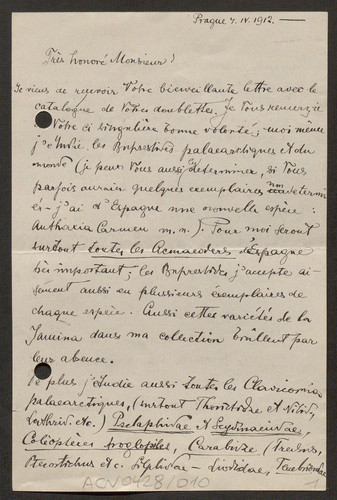 Prague 7. IV. 1912.
Très honoré Monsieur!
Je viens de recevoir Votre bienveillante lettre avec le
catalogue de Votres doublettes. Je Vous remercie
Votre si singulière bonne volonté; moi même
j'étudie les Buprestides palaearctiques et du
monde (je peux Vous aussi déterminer, si Vous
parfois aurain quelques exemplaires non determi
és - j'ai d'Espagne une nouvelle espèce:
Anthaxia Carmen m. n.). Pour moi seront
surtout toutes les Acmaeoders d'Espagne
très important; les Buprestides j'accepte ai-
sément aussi en plusieurs exemplaires de
chaque espèce. Aussi cettes variétés de la
dans ma collection brillent par
leur absence.
De plus j'étudie aussi toutes les Clavicornia
palaearctiques, (surtout Thorictidae et Nitid.
Lathrid. etc.) Pselaphidae et Scydmaenidae,
Coléoptères troglophiles, Carabidae (Trechus,
Pterostichus etc. Silphidae - Tenebrionidae
ACN0428/010
1